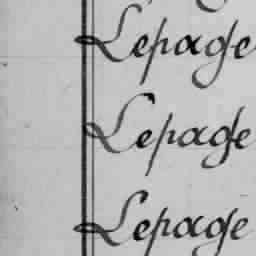 Lepage
Lepage
Lepage